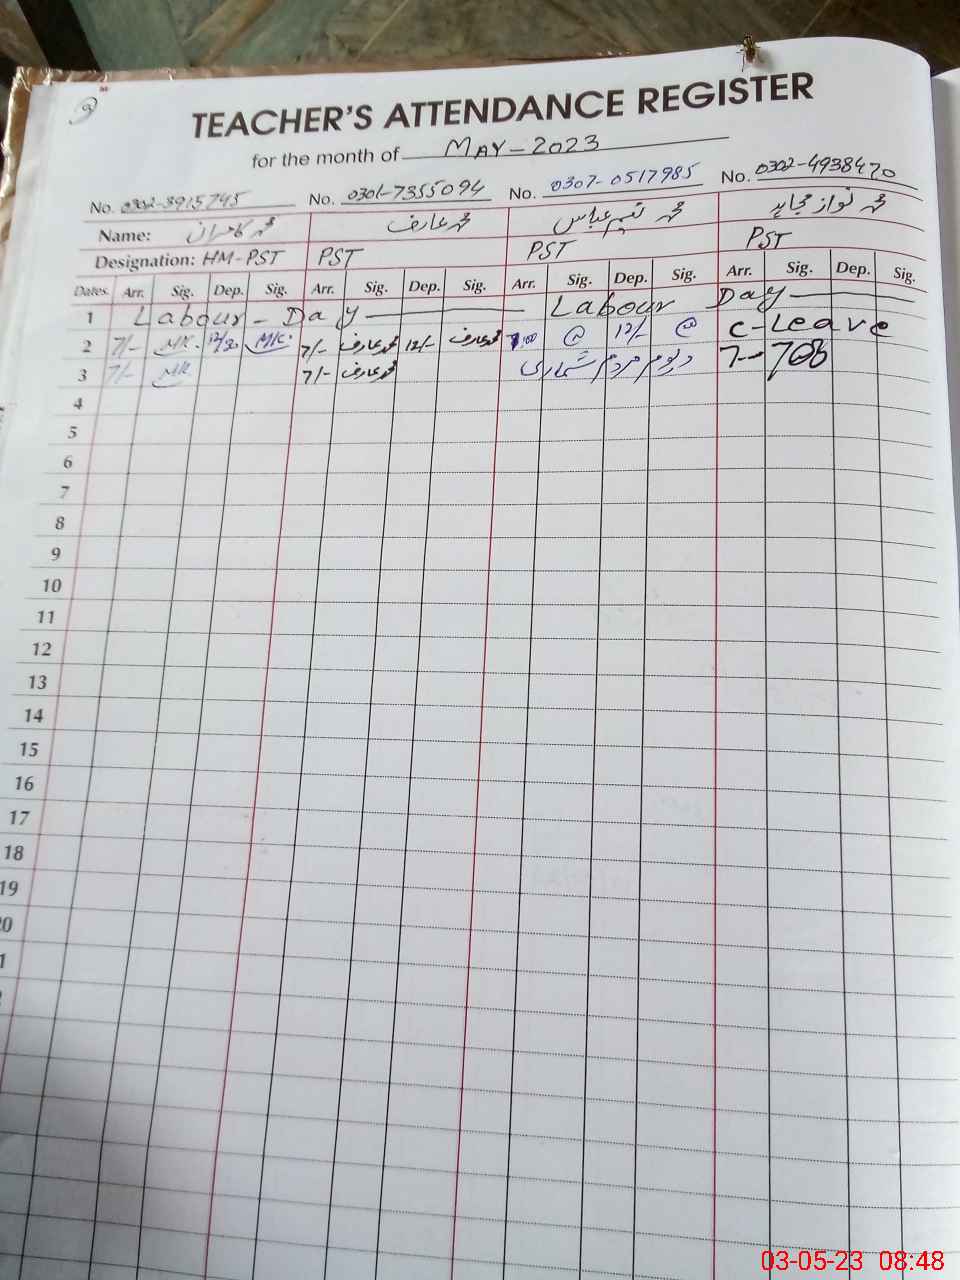 9
TEACHER'S ATTENDANCE REGISTER
for the month of MAY-2023
No. 0302-3915745 No. 0301-7355094 No. 0307-0517985 No. 0302-4938470
Name: محمد کامران محمد عارف محمد نسیم عباس محمد نواز مجاہد
Designation: HM-PST PST PST PST
Dates. Arr. Sig. Dep. Sig. Arr. Sig. Dep. Sig. Arr. Sig. Dep. Sig. Arr. Sig. Dep. Sig.
1 Labour-Day Labour Day
2 7/- MK. 12/30 MK. 7/- محمد عارف 12/- محمد عارف 7:00 @ 12/- @ C-Leave
3 7/- MK 7/- محمد عارف ڈیوٹی مردم شماری 7--
4
5
6
7
8
9
10
11
12
13
14
15
16
17
18
19
20
1
03-05-23 08:48